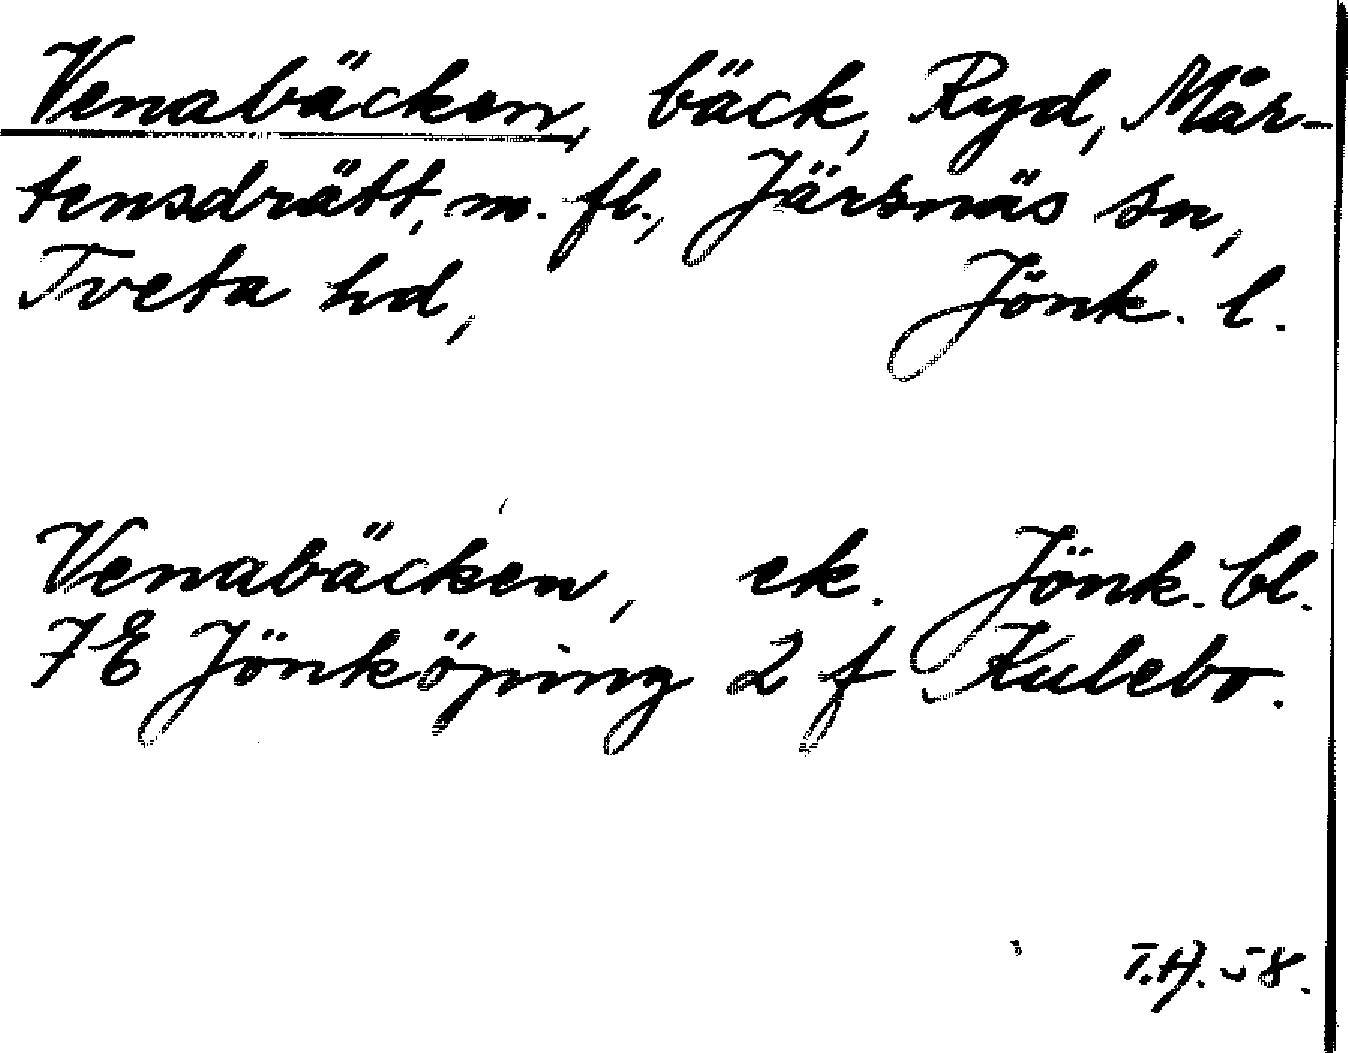 Venabäcken, bäck, Ryd, Mår-
tensdrätt, m. fl., Järsnäs sn,
Tveta hd, Jönk. l.
Venabäcken, ek. Jönk. bl.
7E Jönköping 2 f Kulebo.
T.A. 58.